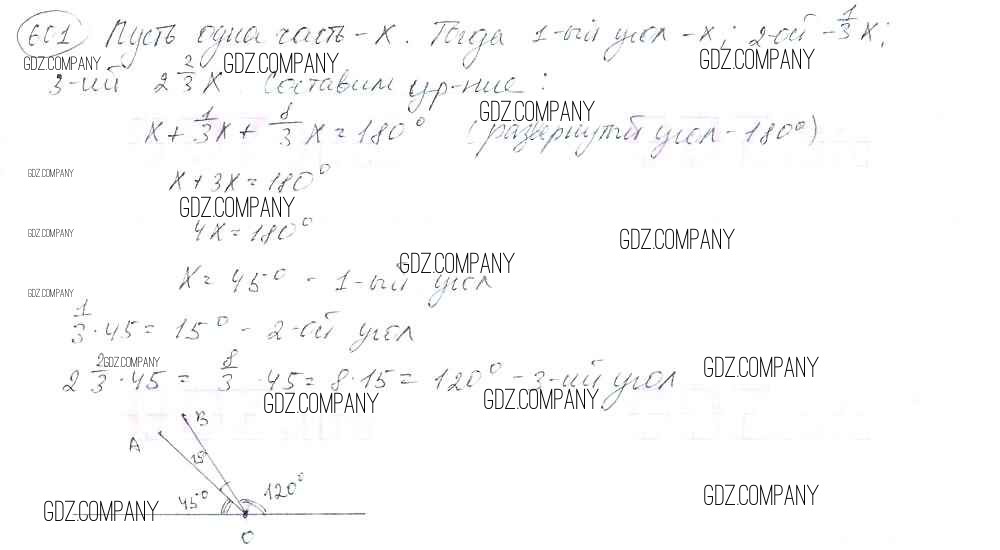 601 Пусть одна часть - x. Тогда 1-ый угол - x; 2-ой - 1/3 x;
GDZ.COMPANY GDZ.COMPANY GDZ.COMPANY
3-ий 2 2/3 x. Составим ур-ние:
GDZ.COMPANY
x + 1/3 x + 8/3 x = 180° (развернутый угол - 180°)
GDZ.COMPANY
x + 3x = 180°
GDZ.COMPANY
GDZ.COMPANY 4x = 180° GDZ.COMPANY
GDZ.COMPANY
x = 45° - 1-ый угол
GDZ.COMPANY
1/3 · 45 = 15° - 2-ой угол
GDZ.COMPANY GDZ.COMPANY
2 2/3 · 45 = 8/3 · 45 = 8 · 15 = 120° - 3-ий угол
GDZ.COMPANY GDZ.COMPANY
B
A
15°
45° 120°
GDZ.COMPANY GDZ.COMPANY
O